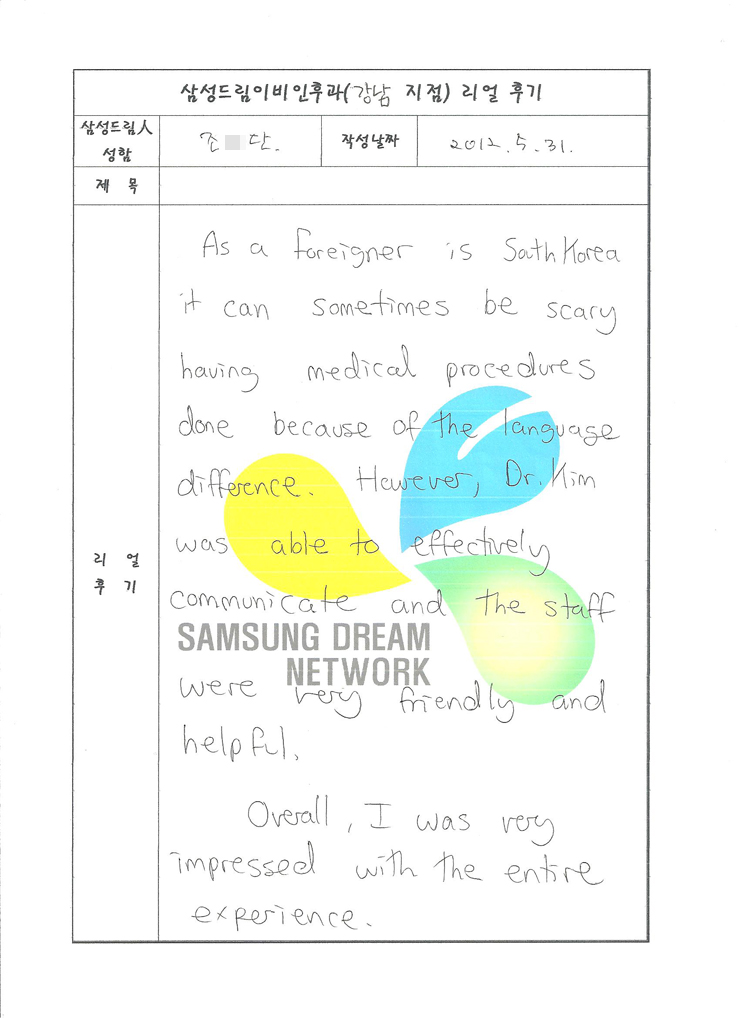 삼성드림이비인후과(강남 지점) 리얼 후기
삼성드림人 성함
조 단.
작성날짜
2012. 5. 31.
제 목
리 얼
후 기
As a foreigner is South Korea
it can sometimes be scary
having medical procedures
done because of the language
difference. However, Dr. Kim
was able to effectively
communicate and the staff
were very friendly and
helpful.
Overall, I was very
impressed with the entire
experience.
SAMSUNG DREAM
NETWORK